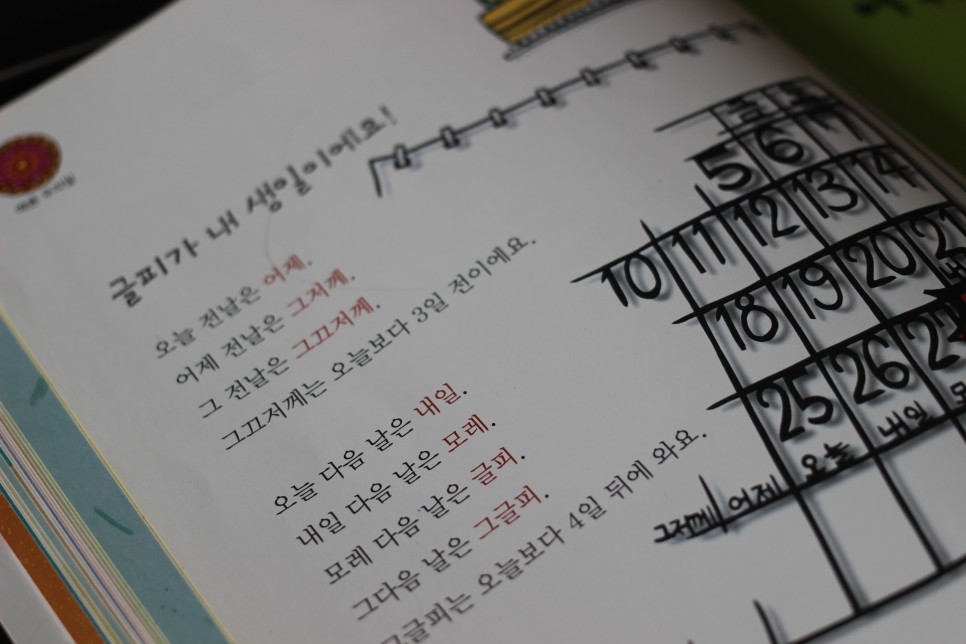 글피가 내 생일이에요!
오늘 전날은 어제.
어제 전날은 그저께.
그 전날은 그끄저께.
그끄저께는 오늘보다 3일 전이에요.
오늘 다음 날은 내일.
내일 다음 날은 모레.
모레 다음 날은 글피.
그다음 날은 그글피.
그글피는 오늘보다 4일 뒤에 와요.
금
5 6 7
10 11 12 13 14
18 19 20 21
25 26
그저께 어제 오늘 내일